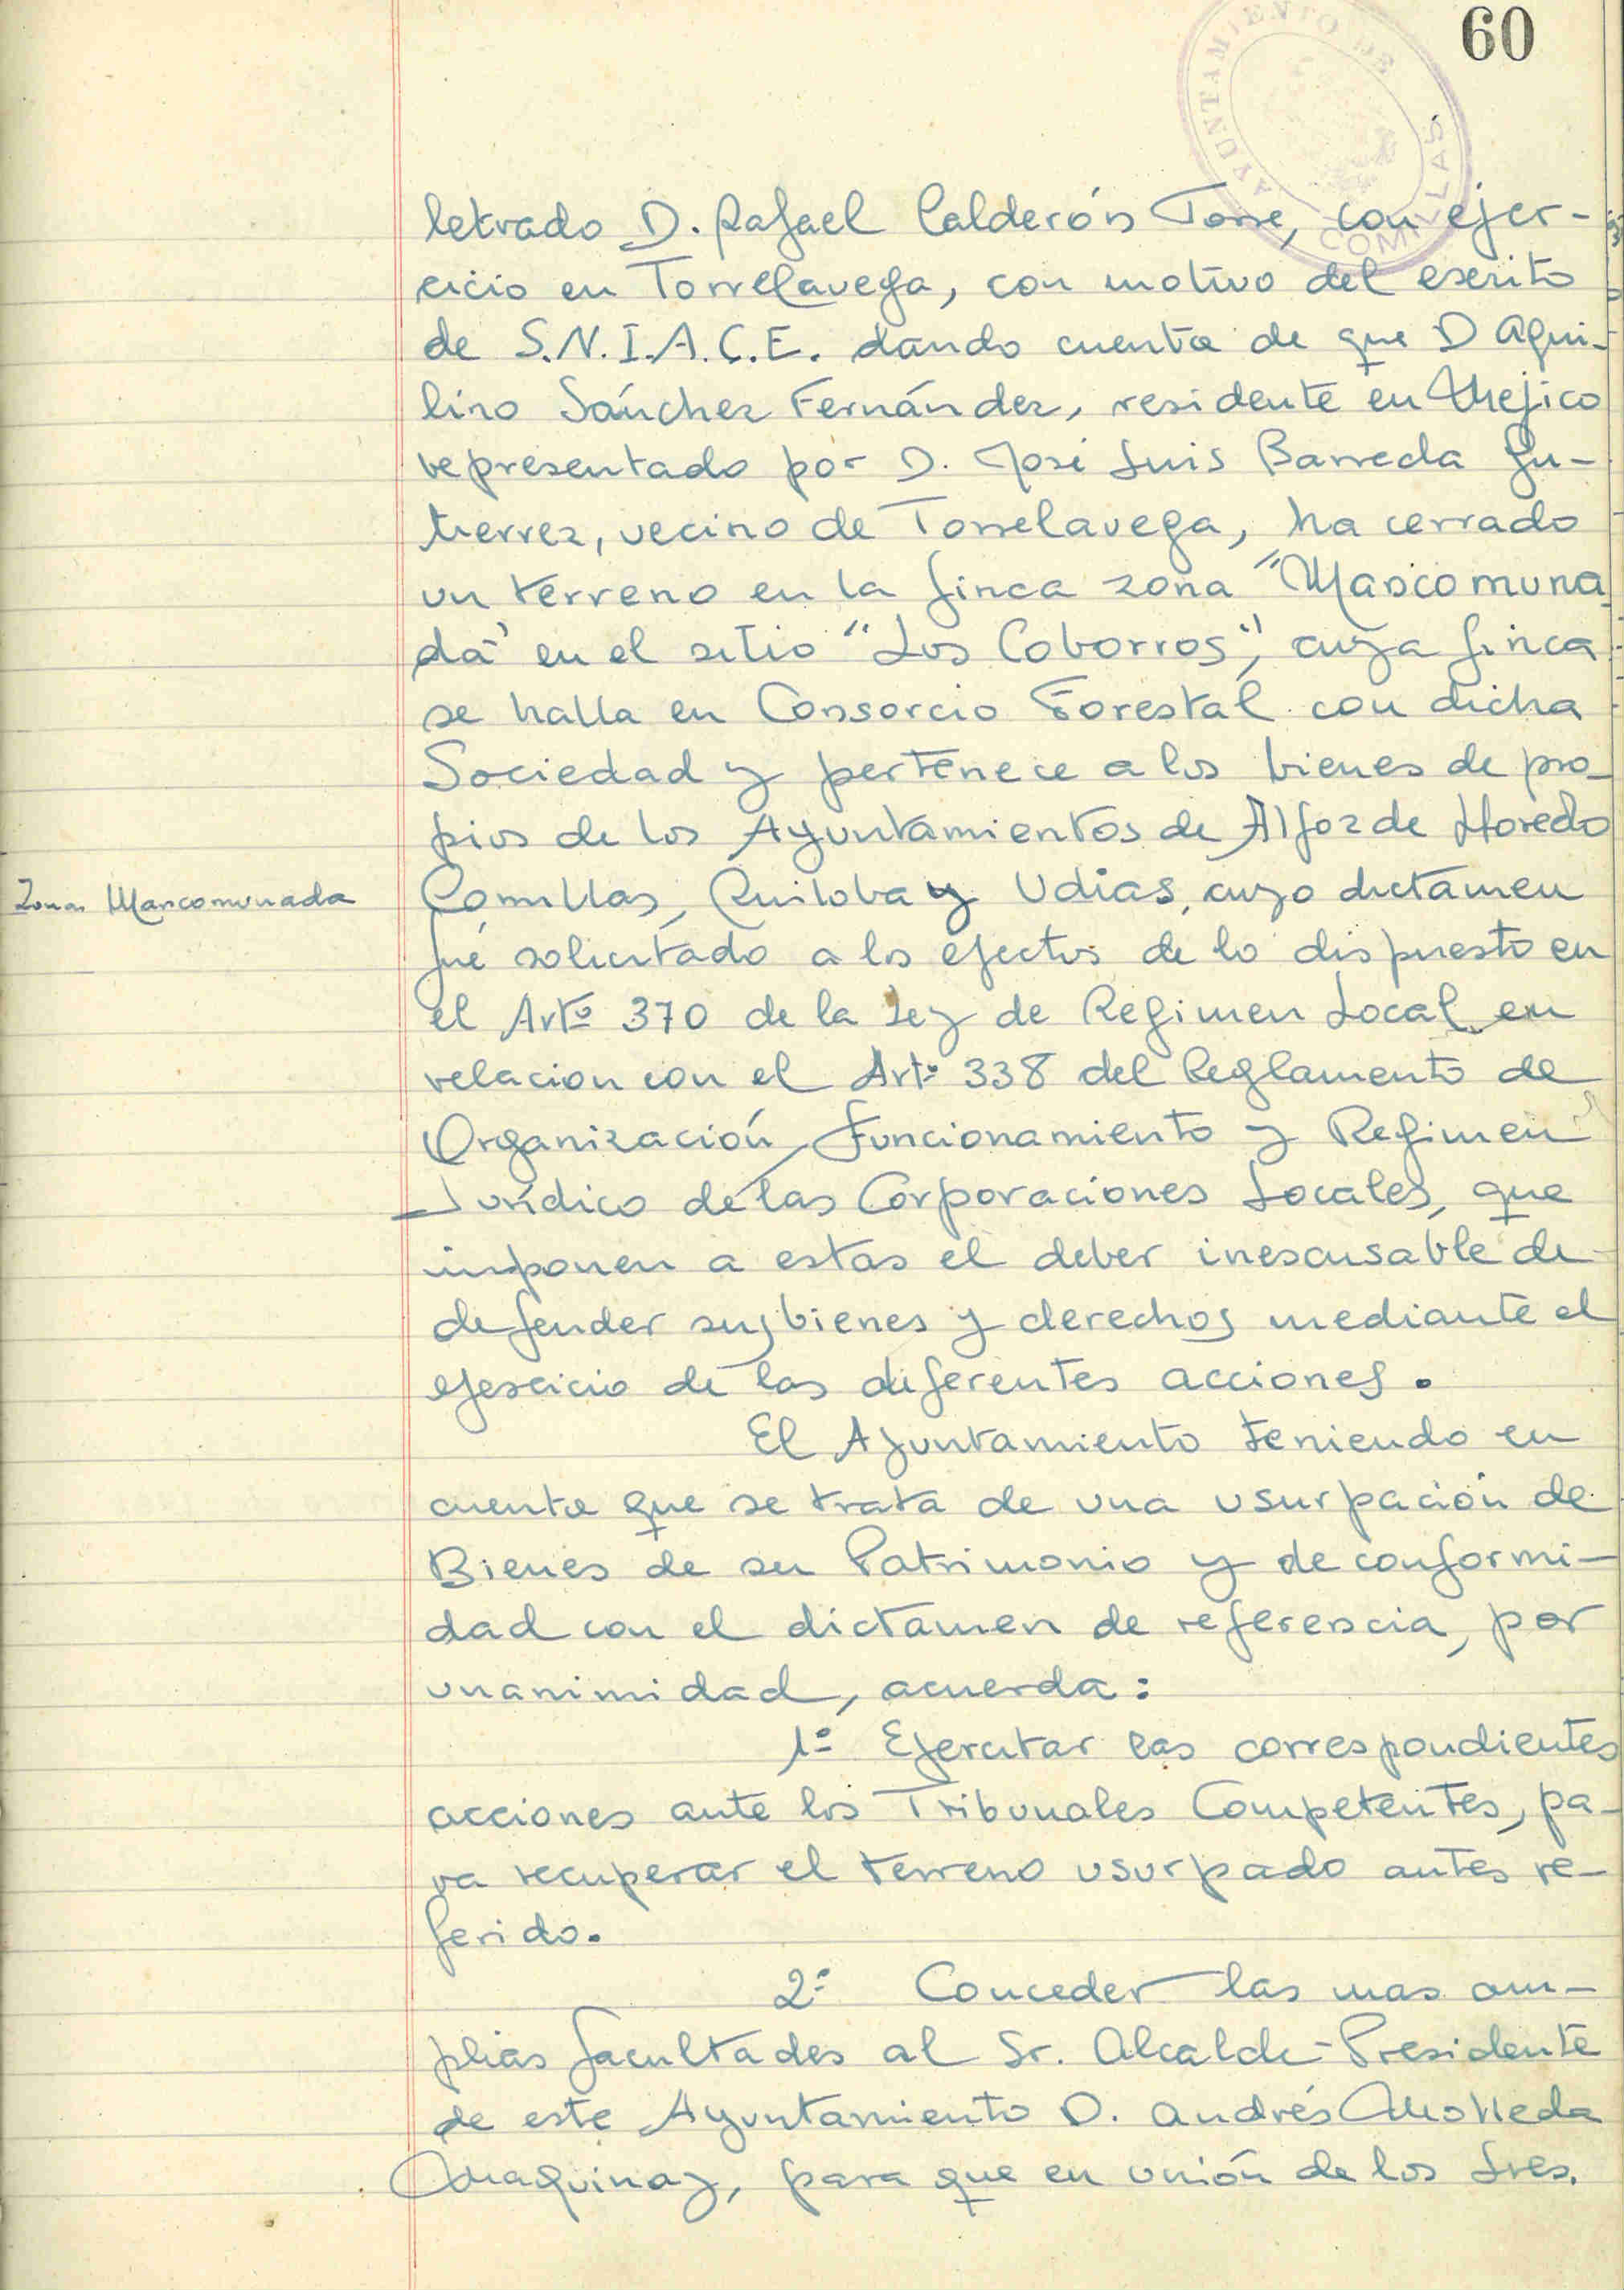 60
AYUNTAMIENTO DE COMILLAS
letrado D. Rafael Calderón Torre, con ejer-
cicio en Torrelavega, con motivo del escrito
de S.N.I.A.C.E. dando cuenta de que D Aqui-
lino Sánchez Fernández, residente en Mejico
representado por D. José Luis Barreda Gu-
tierrez, vecino de Torrelavega, ha cerrado
un terreno en la finca zona "Mancomuna
da" en el sitio "Los Coborros", cuya finca
se halla en Consorcio Forestal con dicha
Sociedad y pertenece a los bienes de pro-
pios de los Ayuntamientos de Alfoz de Lloredo
Zona Mancomunada
Comillas, Ruiloba y Udias, cuyo dictamen
fué solicitado a los efectos de lo dispuesto en
el Artº 370 de la Ley de Regimen Local en
relacion con el Artº 338 del Reglamento de
Organización, Funcionamiento y Regimen
Jurídico de las Corporaciones Locales, que
imponen a estas el deber inescusable de
defender sus bienes y derechos mediante el
ejercicio de las diferentes acciones.
El Ayuntamiento teniendo en
cuenta que se trata de una usurpación de
Bienes de su Patrimonio y de conformi-
dad con el dictamen de referencia, por
unanimidad, acuerda:
1º Ejercitar las correspondientes
acciones ante los Tribunales Competentes, pa-
ra recuperar el terreno usurpado antes re-
ferido.
2º Conceder las mas am-
plias facultades al Sr. Alcalde-Presidente
de este Ayuntamiento D. Andrés Molleda
Maquinay, para que en unión de los Sres.